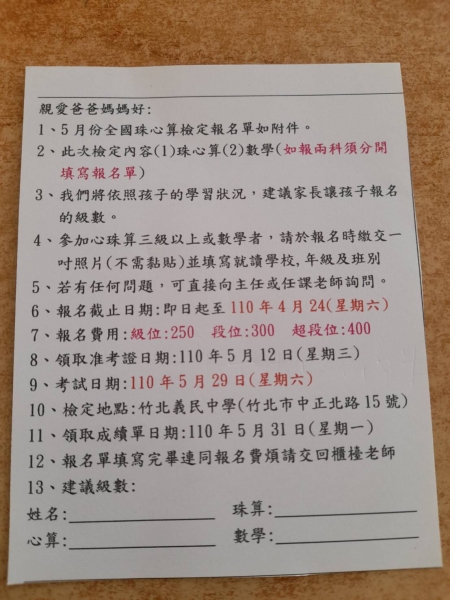 親愛爸爸媽媽好:
1、5月份全國珠心算檢定報名單如附件。
2、此次檢定內容(1)珠心算(2)數學(如報兩科須分開
填寫報名單)
3、我們將依照孩子的學習狀況，建議家長讓孩子報名
的級數。
4、參加心珠算三級以上或數學者，請於報名時繳交一
吋照片(不需黏貼)並填寫就讀學校,年級及班別
5、若有任何問題，可直接向主任或任課老師詢問。
6、報名截止日期:即日起至110年4月24(星期六)
7、報名費用:級位:250 段位:300 超段位:400
8、領取准考證日期:110年5月12日(星期三)
9、考試日期:110年5月29日(星期六)
10、檢定地點:竹北義民中學(竹北市中正北路15號)
11、領取成績單日期:110年5月31日(星期一)
12、報名單填寫完畢連同報名費煩請交回櫃檯老師
13、建議級數:
姓名:____________ 珠算:____________
心算:____________ 數學:____________